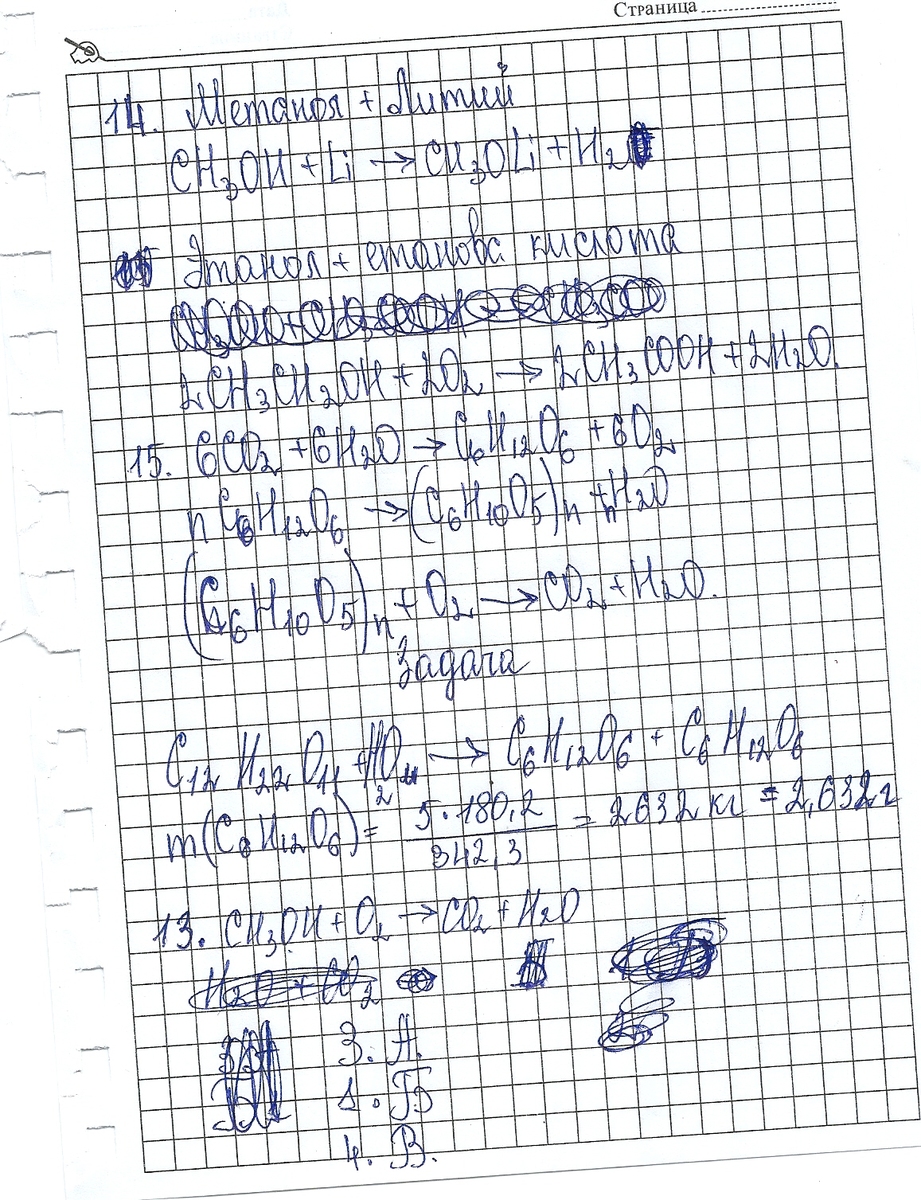 Страница
14. Метанол + Литий
CH3OH + Li → CH3OLi + H2
Этанол + етанова кислота
2CH3CH2OH + 2O2 → 2CH3COOH + 2H2O.
15. 6CO2 + 6H2O → C6H12O6 + 6O2
n C6H12O6 → (C6H10O5)n + nH2O
(C6H10O5)n + O2 → CO2 + H2O.
Задача
C12H22O11 + H2O → C6H12O6 + C6H12O6
m(C6H12O6) = 5·180,2 / 342,3 = 2632 кг = 2,632 г
13. CH3OH + O2 → CO2 + H2O
H2O + CO2
3. А.
1. Б
4. В.